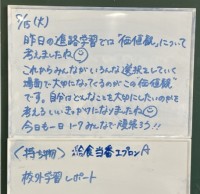 5/15(火)
昨日の進路学習では"価値観"について
考えましたね
これからみんながいろんな選択をしていく
場面で大切になってくるのがこの価値観"
です。自分はどんなことを大切にしたいのかを
考えるいいきっかけになりましたね
今日も一日1-7みんなで頑張ろう!!
〈持ち物〉 給食当番エプロンA
校外学習レポート